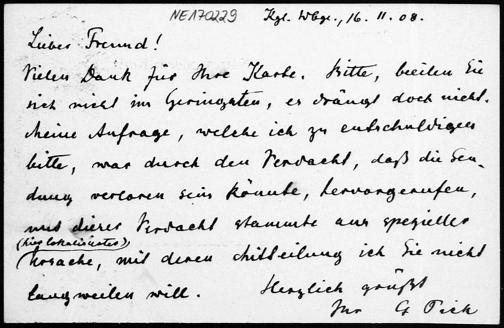 NE170229 Kgl. Wbge., 16. II. 08.
Lieber Freund!
Vielen Dank für Ihre Karte. Bitte, beeilen Sie
sich nicht im Geringsten, es drängt doch nicht.
Meine Anfrage, welche ich zu entschuldigen
bitte, war durch den Verdacht, daß die Sen-
dung verloren sein könnte, hervorgerufen,
und dieser Verdacht stammte aus spezieller
(hier lokalisierter)
Ursache, mit deren Mitteilung ich Sie nicht
langweilen will. Herzlich grüßt
Ihr G Pick